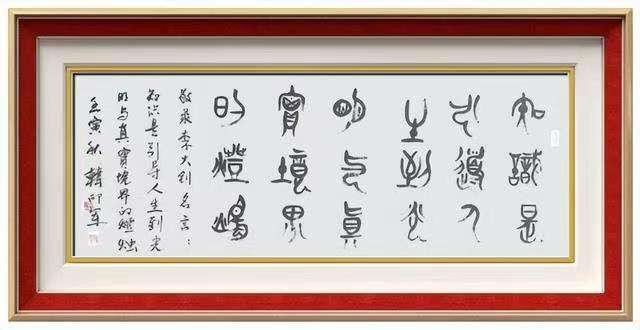 知識是
引導人
生到光
明与真
實境界
的燈燭
敬录李大钊名言：
知识是引导人生到光
明与真實境界的燈烛
壬寅秋 韓